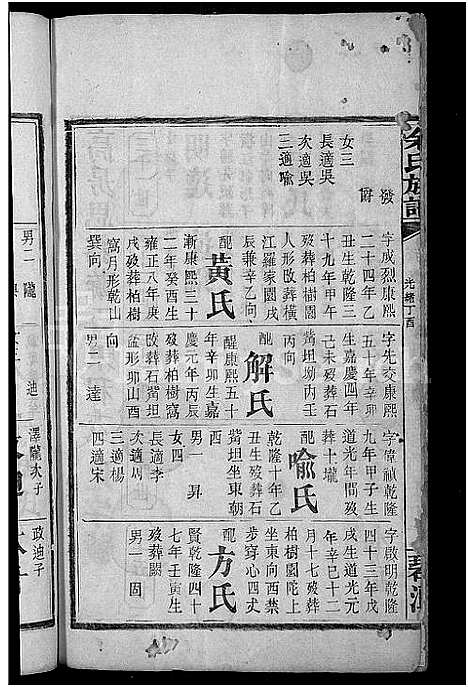 余氏族譜
光緒丁酉
發
女三
長適吳
次適吳
三適喻
字成烈康熙
二十四年乙
丑生乾隆三
十九年甲午
歿葬柏樹園
人形改葬橫
江羅家園戌
辰兼辛乙向
配黃氏
漸康熙三十
二年癸酉生
雍正八年庚
戌歿葬柏樹
窩月形乾山
巽向
字先交康熙
五十年辛卯
生嘉慶四年
己未歿葬石
觜坦坳內壬
丙向
配解氏
醒康熙五十
年辛卯生嘉
慶元年丙辰
歿葬柏樹窩
改葬石觜坦
盆形卯山酉
向
男二 達
禎乾隆
九年甲子生
道光年間歿
葬十壠
配喻氏
乾隆十年乙
丑生歿葬石
觜坦坐東朝
西
男一 昇
女四
長適李
次適周
三適楊
四適宋
字啟明乾隆
四十三年戊
戌生道光元
年辛巳十二
月十七歿葬
柏樹園陀上
坐東向西葬
步穿心四丈
配方氏
賢乾隆四十
七年壬寅生
歿葬闕
男一 固
男二 隴
迪
澤隴次子
政迪子